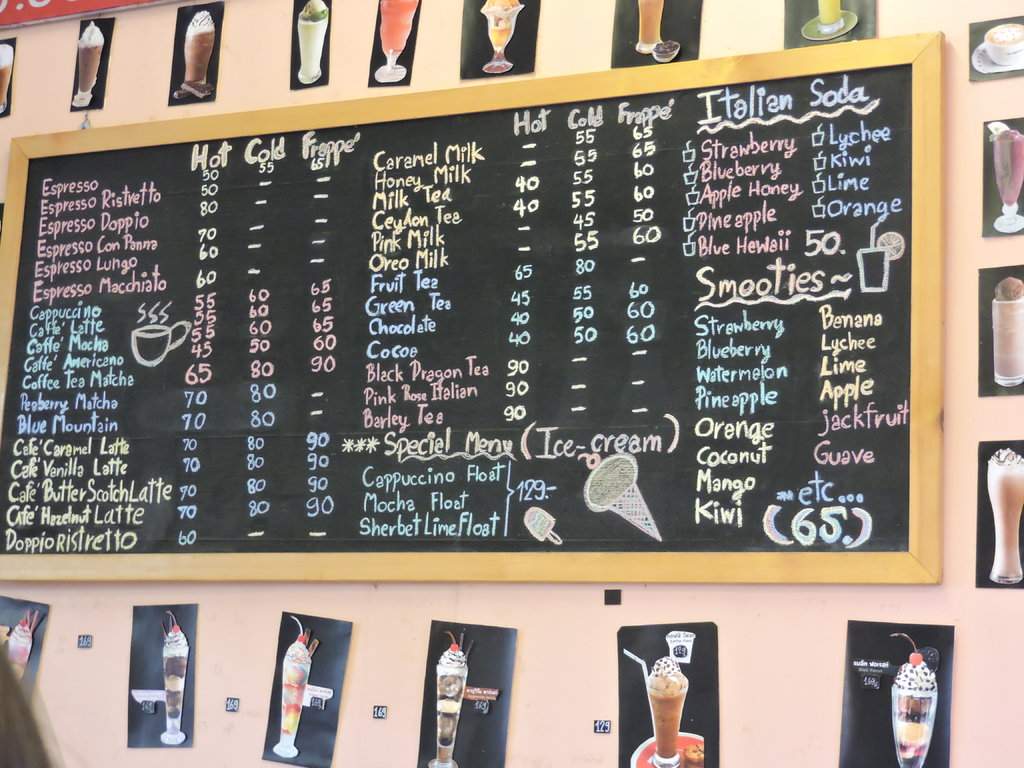 Hot Cold Frappe'
Espresso 50 55 65
Espresso Ristretto 50 - -
Espresso Doppio 80 - -
Espresso Con Panna 70 - -
Espresso Lungo 60 - -
Espresso Macchiato 60 - -
Cappuccino 55 60 65
Caffe' Latte 55 60 65
Caffe' Mocha 55 60 65
Caffe' Americano 45 50 60
Coffee Tea Matcha 65 80 90
Peaberry Matcha 70 80 -
Blue Mountain 70 80 -
Cafe' Caramel Latte 70 80 90
Cafe' Vanilla Latte 70 80 90
Cafe' ButterScotch Latte 70 80 90
Cafe' Hazelnut Latte 70 80 90
Doppio Ristretto 60 - -
Hot Cold Frappe'
Caramel Milk - 55 65
Honey Milk - 55 65
Milk Tea 40 55 60
Ceylon Tea 40 55 60
Pink Milk - 45 50
Oreo Milk - 55 60
Fruit Tea 65 80 -
Green Tea 45 55 60
Chocolate 40 50 60
Cocoa 40 50 60
Black Dragon Tea 90 - -
Pink Rose Italian 90 - -
Barley Tea 90 - -
*** Special Menu (Ice-cream)
Cappuccino Float
Mocha Float
Sherbet Lime Float
129.-
Italian Soda
Strawberry Lychee
Blueberry Kiwi
Apple Honey Lime
Pineapple Orange
Blue Hawaii 50.
Smooties~
Strawberry Banana
Blueberry Lychee
Watermelon Lime
Pineapple Apple
Orange jackfruit
Coconut Guave
Mango
Kiwi
** etc...
(65.)
169
169
169
129